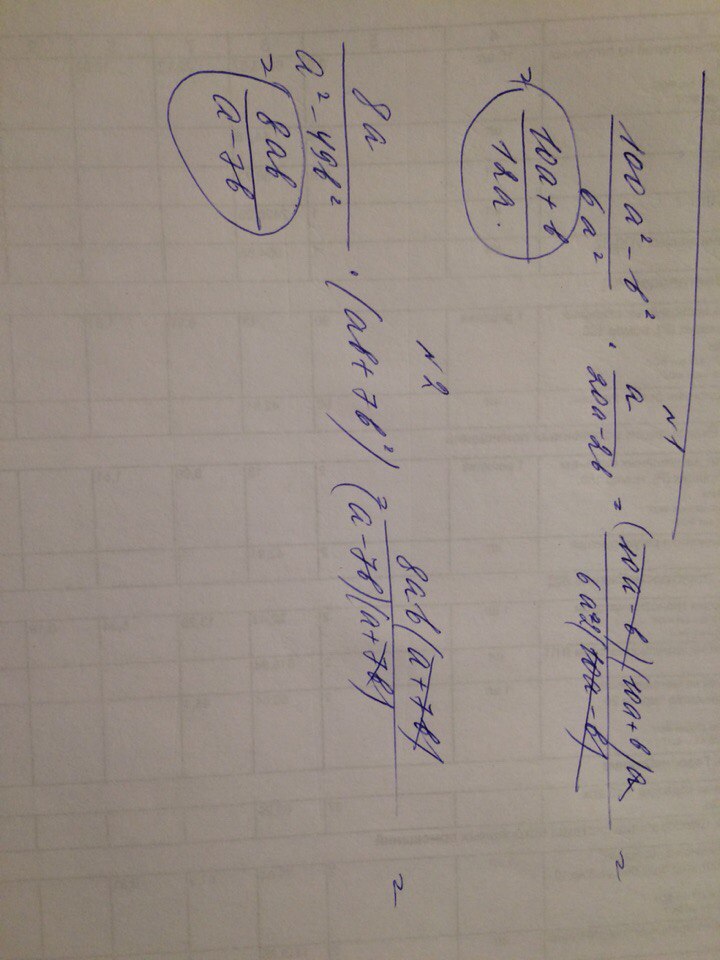 N1
\frac{100a²-b²}{6a²} · \frac{a}{20a-2b} = \frac{(10a-b)(10a+b)a}{6a²2(10a-b)} =
= \frac{10a+b}{12a}.
N2
\frac{8a}{a²-49b²} · (ab+7b²) = \frac{8ab(a+7b)}{(a-7b)(a+7b)} =
= \frac{8ab}{a-7b}